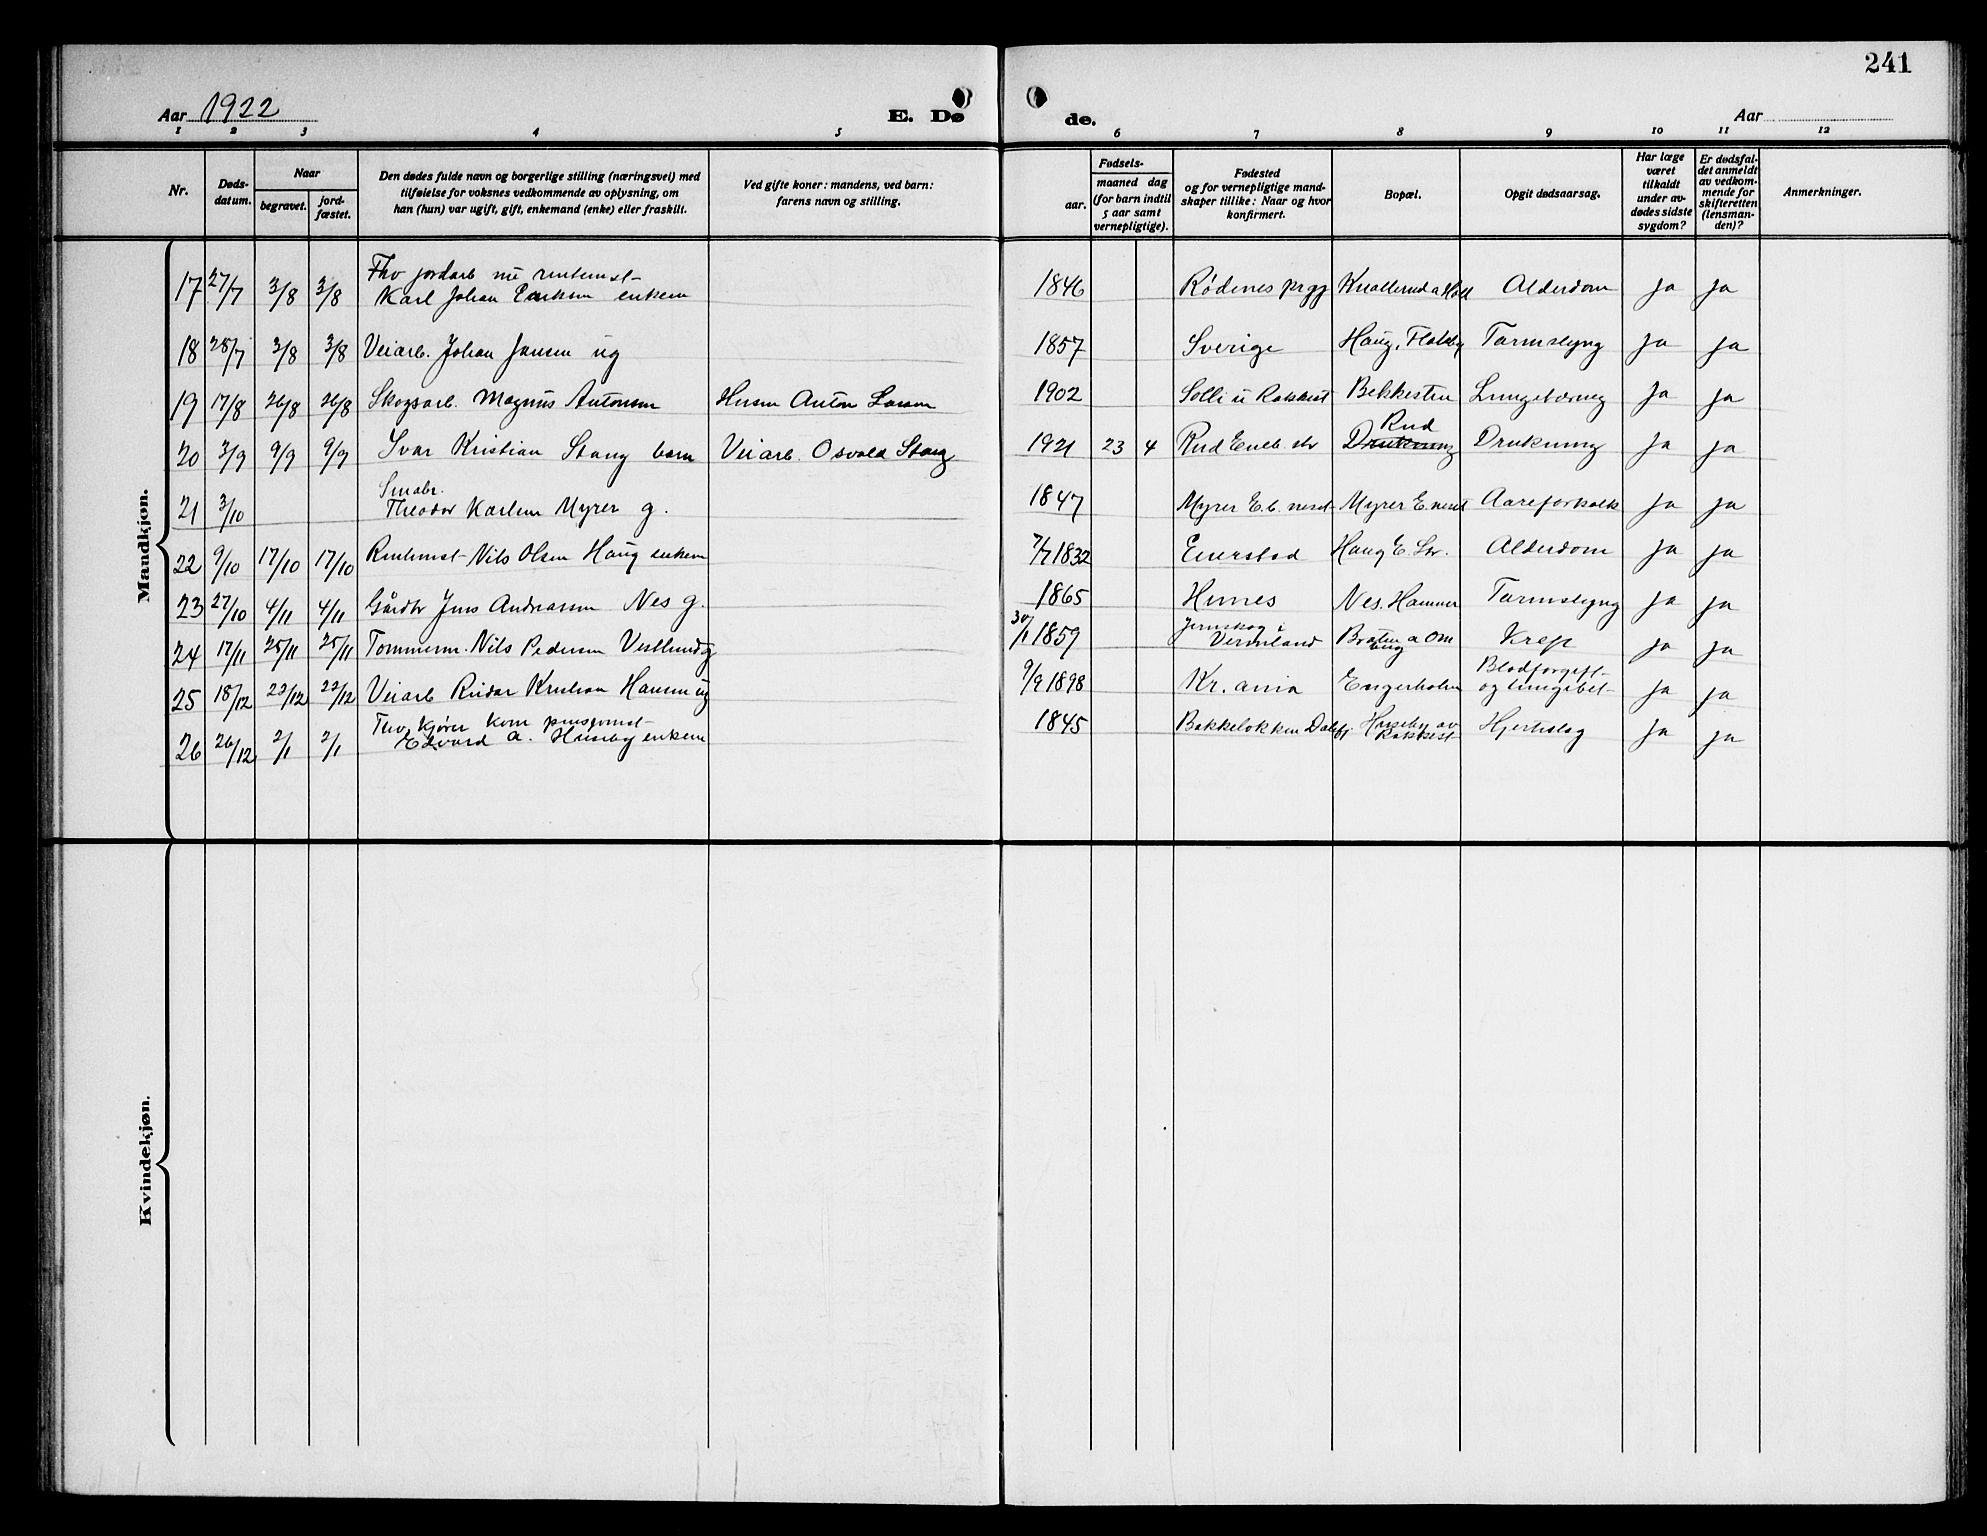 241
Aar 1922
E. Dø
de.
Aar
1 2 3 4 5 6 7 8 9 10 11 12
Nr.
Døds-
datum.
Naar
begravet.
jord-
fæstet.
Den dødes fulde navn og borgerlige stilling (næringsvei) med
tilføielse for voksnes vedkommende av oplysning, om
han (hun) var ugift, gift, enkemand (enke) eller fraskilt.
Ved gifte koner: mandens, ved barn:
farens navn og stilling.
Fødsels-
aar.
maaned dag
(for barn indtil
5 aar samt
vernepligtige).
Fødested
og for vernepligtige mand-
skaper tillike: Naar og hvor
konfirmert.
Bopæl.
Opgit dødsaarsag.
Har læge
været
tilkaldt
under av-
dødes sidste
sygdom?
Er dødsfal-
det anmeldt
av vedkom-
mende for
skifteretten
(lensman-
den)?
Anmerkninger.
Mandkjøn.
Fhv jordarb nu
17 27/7 3/8 3/8 Karl Johan enkem 1846 Rødenes prgj Alderdom Ja Ja
18 28/7 3/8 3/8 Veiarb. Johan Jansen ug 1857 Sverige Haug, Tarmslyng Ja Ja
19 17/8 26/8 26/8 Skogsarb. Magnus Antonsen Husm Anton Larsen 1902 Solli u Rakkest Bekkesten Ja Ja
Rud
20 3/9 9/9 9/9 Ivar Kristian Stang barn Veiarb. Osvald Stang 1921 23 4 Rud Drukning Drukning Ja Ja
Smabr.
21 3/10 Theodor Karlsen Myrer g. 1847 Myrer Myrer Aareforkalk Ja Ja
22 9/10 17/10 17/10 Nils Olsen Haug enkem 7/7 1832 Haug Alderdom Ja Ja
23 27/10 4/11 4/11 Gårdbr Jens Andreassen Nes g. 1865 Hemnes Nes, Hammer Tarmslyng Ja Ja
Jernskog i
24 17/11 25/11 25/11 Tømmerm. Nils Pedersen 30/1 1859 Vermland Kreft Ja Ja
Blodforgift-
25 18/12 22/12 22/12 Veiarb Reidar Kristian Hansen ug 9/9 1898 Kr.ania Engerholm og lungebet- Ja Ja
Fhv kjører kom
26 26/12 2/1 2/1 Edvard A. Huseby enkem 1845 Bakkeløkken Huseby av Rakkest Hjerteslag Ja Ja
Kvindekjøn.